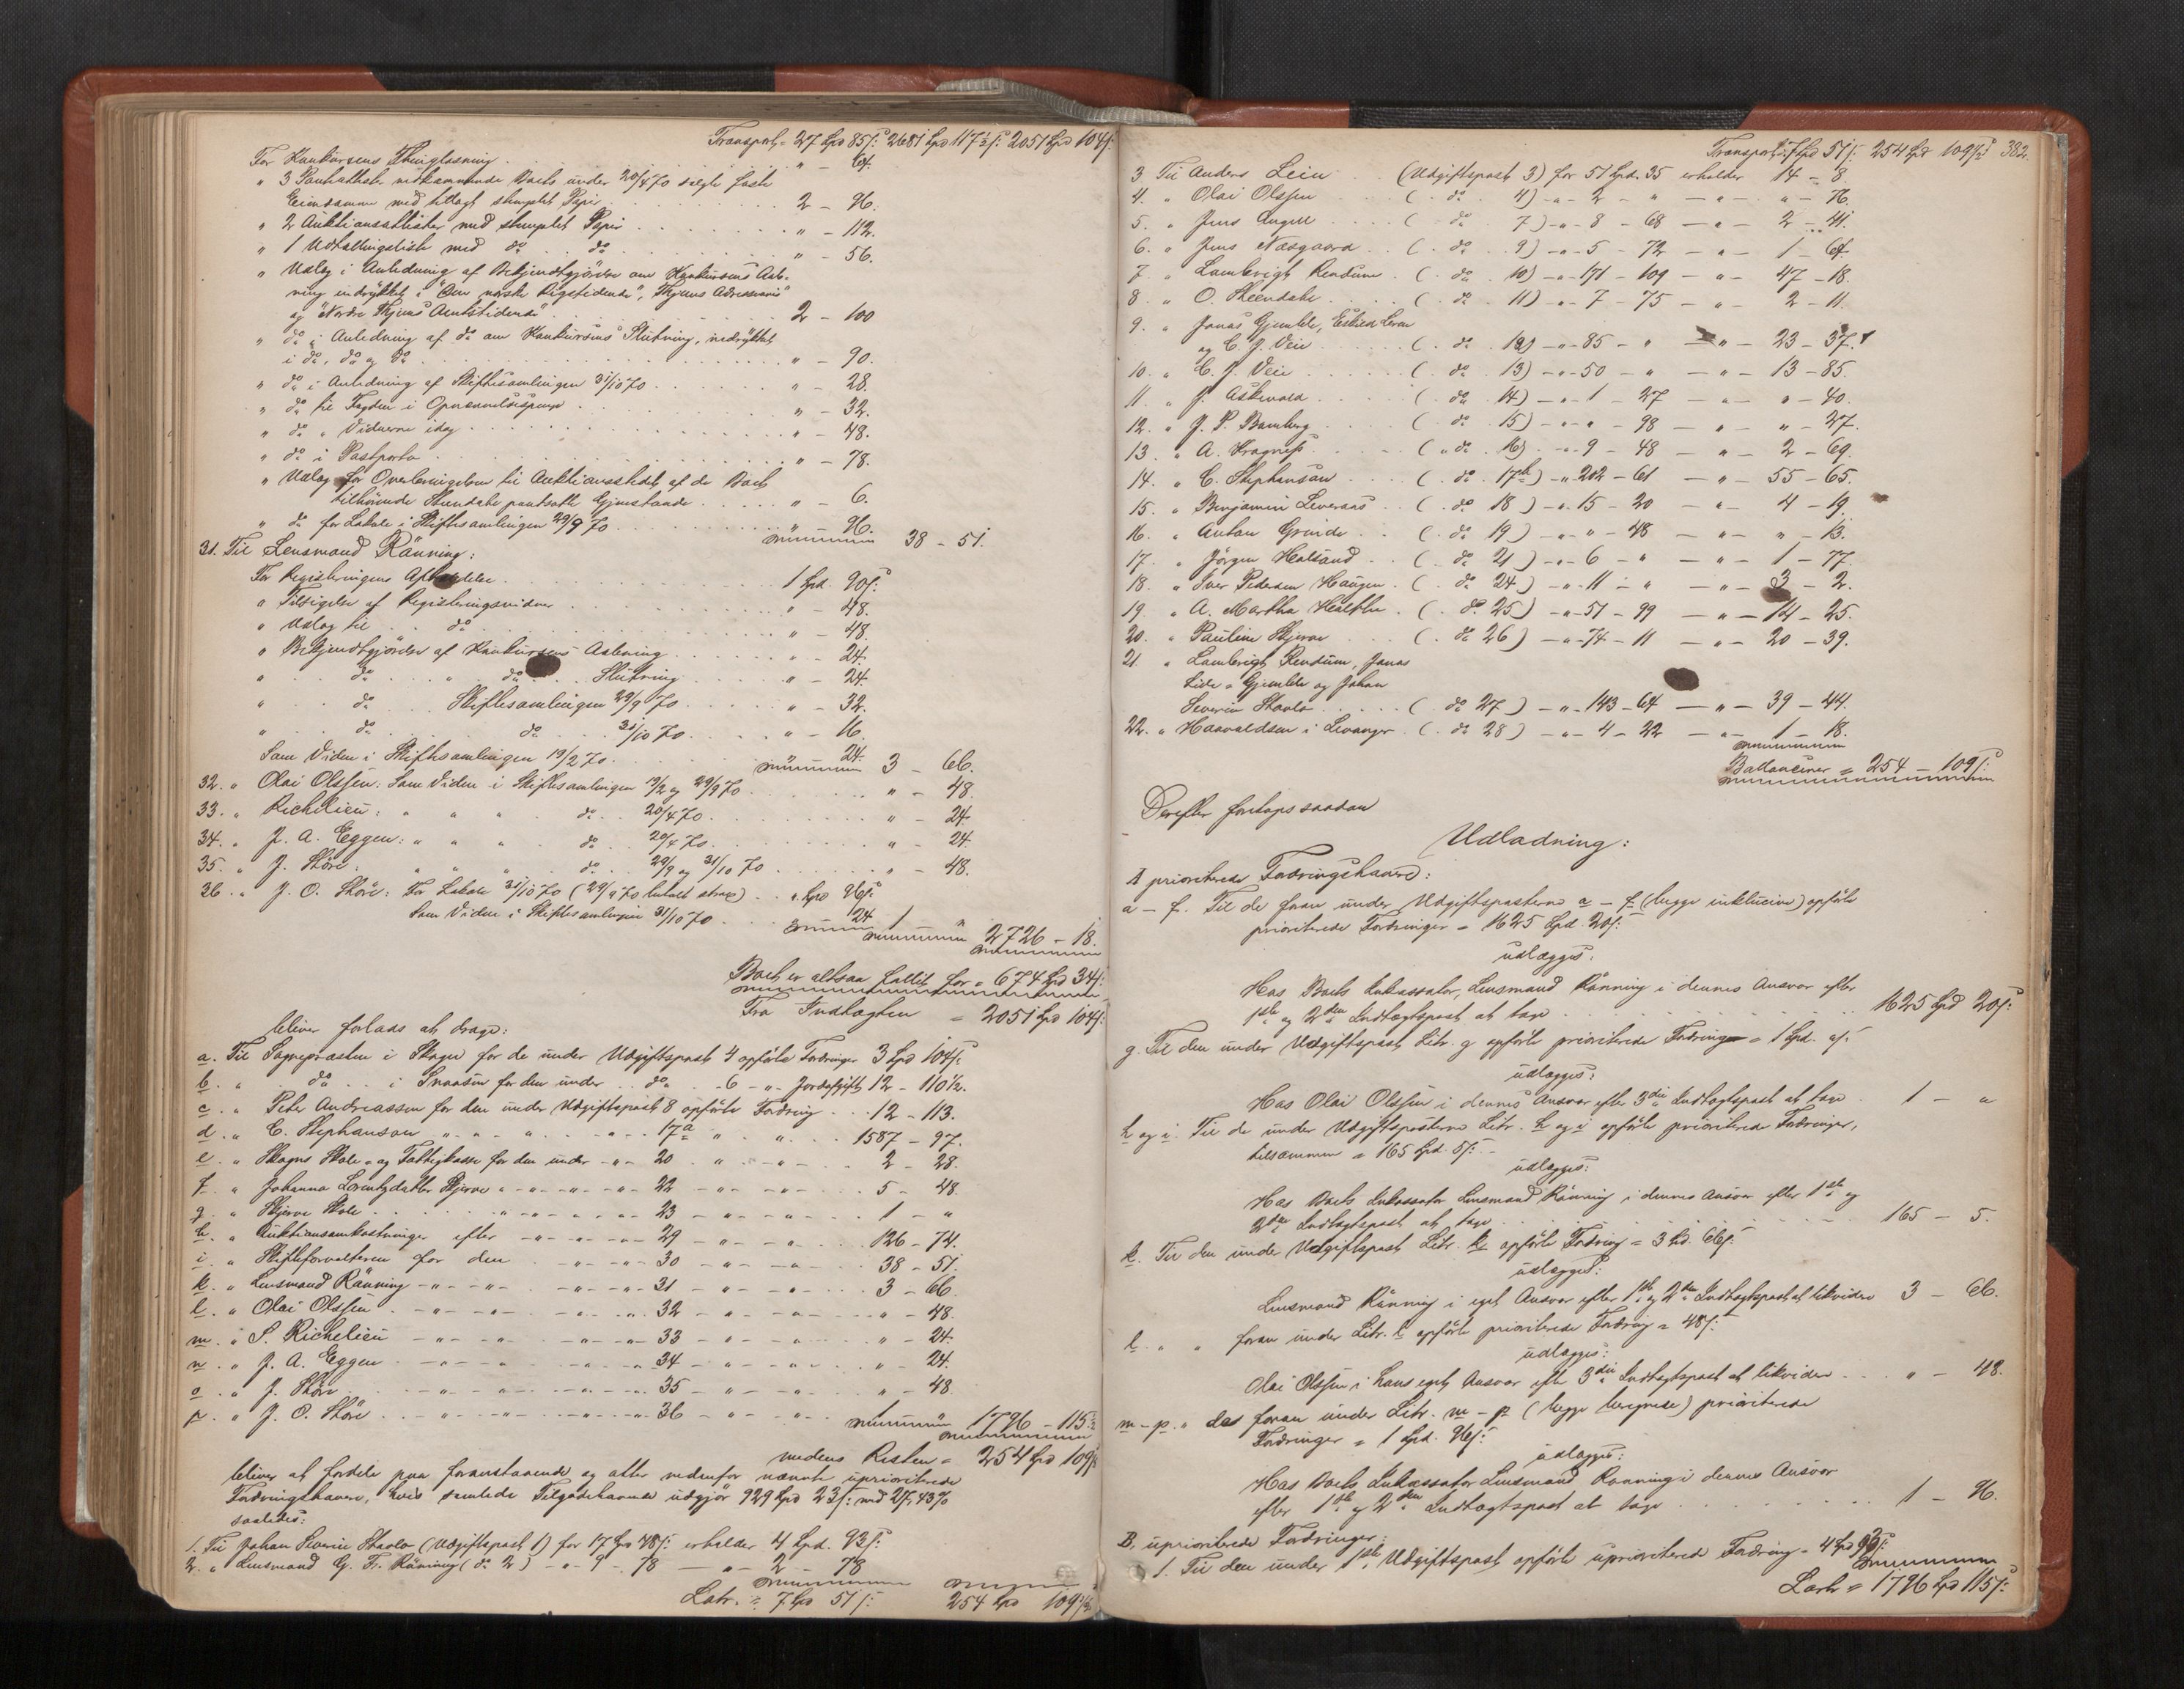 Transport = 27 Spd 85 ſ: 2681 Spd 117½ ſ: 2051 Spd 104 ſ:
For Konkursens Thinglæsning . . . " - 64.
" 3 Panteattester vedkommende Boets under 20/4 70 solgte faste
Eiendomme med tillagt stemplet Papir . . . 2 - 96.
" 2 Auktionsattester med stemplet Papir . . . " - 112.
" 1 Udtællingsliste med do do . . . " - 56.
" Udlæg i Anledning af Bekjendtgjörelse om Konkursens Aab-
ning indrykket i "Den norske Rigstidende", Thjems Adresseavis"
og "Nordre Thjems Amtstidende" . . . 2 - 100
" do i Anledning af do om Konkursens Slutning, indrykket
i do, do og do . . . " - 90.
" do i Anledning af Skiftesamlingen 31/10 70 . . . " - 28.
" do til Fogden i Opnævnelsespenge . . . " - 32.
" do " Vidnerne idag . . . " - 48.
" do i Postporto . . . " - 78.
" Udlæg for Overbringelsen til Auktionsstedet af de Boet
tilhörende Steendahl pantsatte Gjenstande . . . " - 6.
" do for Lokale i Skiftesamlingen 29/9 70 . . . " - 96. 38 - 51.
31. Til Lensmand Rönning:
For Registeringens Afholdelse . . . 1 Spd. 90 ſ:
" Tilsigelse af Registeringsvidner . . . " - 48.
" Udlæg til do . . . " - 48.
" Bekjendtgjörelse af Konkursens Aabning . . . " - 24.
" do " do Slutning . . . " - 24.
" do Skiftesamlingen 29/9 70 . . . " - 32.
" do do 31/10 70 . . . " - 16.
Som Vidne i Skiftesamlingen 19/2 70 . . . 24. 3 - 66.
32. " Olai Olssen: Som Vidne i Skiftesamlingen 19/2 og 29/9 70 . . . " - 48.
33. " Richelieu: " " " do 20/4 70 . . . " - 24.
34. " J. A. Eggen: " " " do 20/4 70 . . . " - 24.
35. " J. Störe: " " " do 29/9 og 31/10 70 . . . " - 48.
36. " J. O. Störe: For Lokale 31/10 70 (29/9 70 betalt strax) . . " Spd 96 ſ:
Som Vidne i Skiftesamlingen 31/10 70 . . . 24 1 "
2726 - 18.
Boet er altsaa fallit for = 674 Spd 34 ſ:
Fra Indtægten = 2051 Spd 104 ſ:
bliver forlods at drage:
a. Til Sognepræsten i Skogn for de under Udgiftspost 4 opförte Fordringer 3 Spd 104 ſ:
b. " do i Snaasen for den under do 6 " Jordafgift 12 - 110½.
c. " Peter Andreassen for den under Udgiftspost 8 opförte Fordring . . 12 - 113.
d. " C. Stephanson " " " 17a " " . . . 1587 - 97.
e. " Skogns Skole- og Fattigkasse for den under " 20 " " . . 2 - 28.
f. " Johanna Lorentzdatter Skjerve " " " 22 " " . . 5 - 48.
g. " Skjerve Skole . . . " " " 23 " " . . 1 - "
h. " Auktionsomkostninger efter " " " 29 " " . . 126 - 74.
i. " Skifteforvalteren for den " " 30 " " . . 38 - 51.
k. " Lensmand Rönning " " " 31 " " . . 3 - 66.
l. " Olai Olssen " " " 32 " " . . " - 48.
m. " S. Richelieu " " " 33 " " . . " - 24.
n. " J. A. Eggen " " " 34 " " . . " - 24.
o. " J. Störe " " " 35 " " . . " - 48.
p. " J. O. Störe " " " 36 " " . . 1 " 1796 - 115½
medens Resten = 254 Spd 109 ſ:
bliver at fordele paa foranstaaende og atter nedenfor nævnte uprioriterede
Fordringshavere, hvis samlede Tilgodehavende udgjör 929 Spd 23 ſ: med 27,43%
saaledes:
1. Til Johan Severin Stavlo (Udgiftspost 1) for 17 Spd 118 ſ: erholder 4 Spd. 93 ſ:
2. " Lensmand G. Fr. Rönning (do 2) " 9 - 78 " 2 - 78
Latr. = 7 Spd 51 ſ: 254 Spd 109 ſ:
Transport: 7 Spd 51 ſ: 254 Spd 109 ſ: 382.
3 Til Anders Lein . . (Udgiftspost 3) for 51 Spd. 35 erholder 14 - 8.
4. " Olai Olssen . . . ( do 4) " 2 - " - " - 76.
5. " Jens Angell . . . ( do 7) " 8 - 68 - " - 2 - 41.
6. " Jens Næsgaard . . ( do 9) " 5 - 72 - " - 1 - 64.
7. " Lambrigt Rendum ( do 10) " 171 - 109 - " - 47 - 18.
8. " O. Steendahl . . . ( do 11) " 7 - 75 - " - 2 - 11.
9. " Jonas Gjemble, Eskild Leren
og C. J. Veie . . . ( do 12) " 85 - " - " - 23 - 37.
10. " C. J. Veie . . . ( do 13) " 50 - " - " - 13 - 85.
11. " J. Askevold . . . ( do 14) " 1 - 27 - " - " - 40.
12. " J. P. Bamberg . . . ( do 15) " " - 98 - " - " - 27.
13. " A. Kragness . . . ( do 16) " 9 - 48 - " - 2 - 69.
14. " C. Stephanson . . . ( do 17b) " 202 - 61 - " - 55 - 65.
15. " Benjamin Leveraas . . ( do 18) " 15 - 20 - " - 4 - 19.
16. " Anton Grinde . . ( do 19) " " - 48 - " - " - 13.
17. " Jörgen Halsand . . ( do 21) " 6 - " - " - 1 - 77.
18. " Iver Pedersen Haugen . ( do 24) " 11 - " - " - 3 - 2.
19. " A. Martha Hestflo . ( do 25) " 51 - 99 - " - 14 - 25.
20. " Pauline Skjerve . . ( do 26) " 74 - 11 - " - 20 - 39.
21. " Lambrigt Rendum, Jonas
Eide " Gjemble og Johan
Severin Stavlo . . . ( do 27) " 143 - 64 - " - 39 - 44.
22. " Haavaldsen i Levanger . ( do 28) " 4 - 22 - " - 1 - 18.
Ballancerer = 254 - 109 ſ:
Derefter foretoges saadan
Udlodning:
A prioriterede Fordringshavere:
a - f. Til de foran under Udgiftsposterne a - f (begge inklusive) opförte
prioriterede Fordringer = 1625 Spd. 20 ſ:
udlægges:
Hos Boets Inkassator, Lensmand Rönning i dennes Ansvar efter
1ste og 2den Indtægtspost at tage . . . 1625 Spd 20 ſ:
g. Til den under Udgiftspost Litr. g opförte prioriterede Fordring = 1 Spd. " ſ:
udlægges:
Hos Olai Olssen i dennes Ansvar efter 3die Indtægtspost at tage . 1 - "
h og i. Til de under Udgiftsposterne Litr. h og i opförte prioriterede Fordringer,
tilsammen = 165 Spd. 5 ſ:
udlægges:
Hos Boets Inkassator Lensmand Rönning i dennes Ansvar efter 1ste og
2den Indtægtspost at tage . . . 165 - 5.
k. Til den under Udgiftspost Litr. k opförte Fordring = 3 Spd. 66 ſ:
udlægges:
Lensmand Rönning i eget Ansvar efter 1ste og 2den Indtægtspost at likvidere 3 - 66.
l. " " foran under Litr. l opförte prioriterede Fordring = 48 ſ:
udlægges:
Olai Olssen i hans eget Ansvar efter 3die Indtægtspost at likvidere . . . " - 48.
m - p. " de foran under Litr. m - p (begge beregnede) prioriterede
Fordringer = 1 Spd. 96 ſ:
udlægges:
Hos Boets Inkassator Lensmand Rönning i dennes Ansvar
efter 1ste og 2den Indtægtspost at tage . . . 1 - 96.
B, uprioriterede Fordringer:
1. Til den under 1ste Udgiftspost opförte uprioriterede Fordring = 4 Spd 93 ſ:
Latr = 1796 Spd 115 ſ: